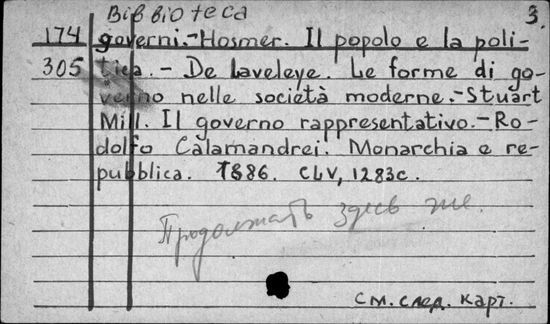 Bibbioteca 3.
174 governi.-Hosmer. Il popolo e la poli-
305 tica.- De Laveleye. Le forme di go-
verno nelle società moderne.-Stuart
Mill. Il governo rappresentativo.-Ro-
dolfo Calamandrei. Monarchia e re-
pubblica. 1886. CLV, 1283c.
Продолжать здесь же.
См. след. карт.